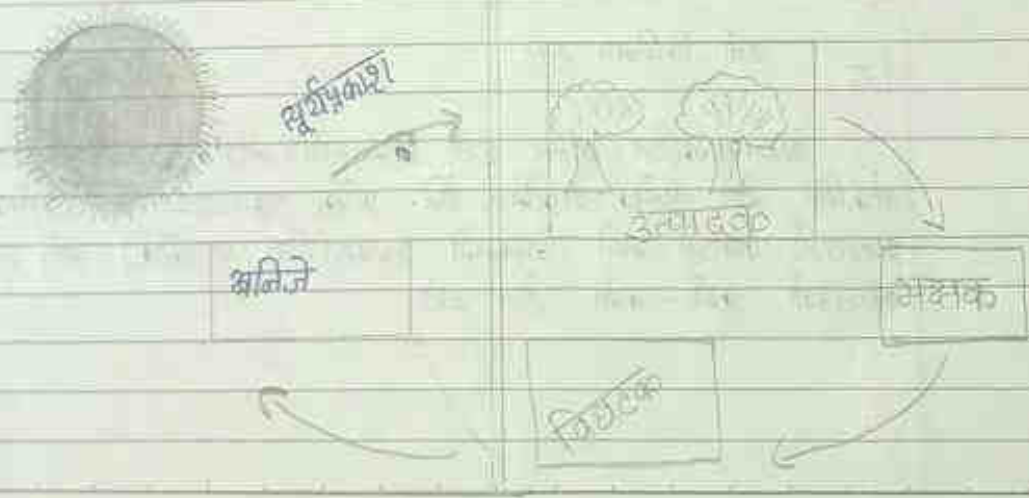 सूर्यप्रकाश
उत्पादक
खनिजे
भक्षक
विघटक